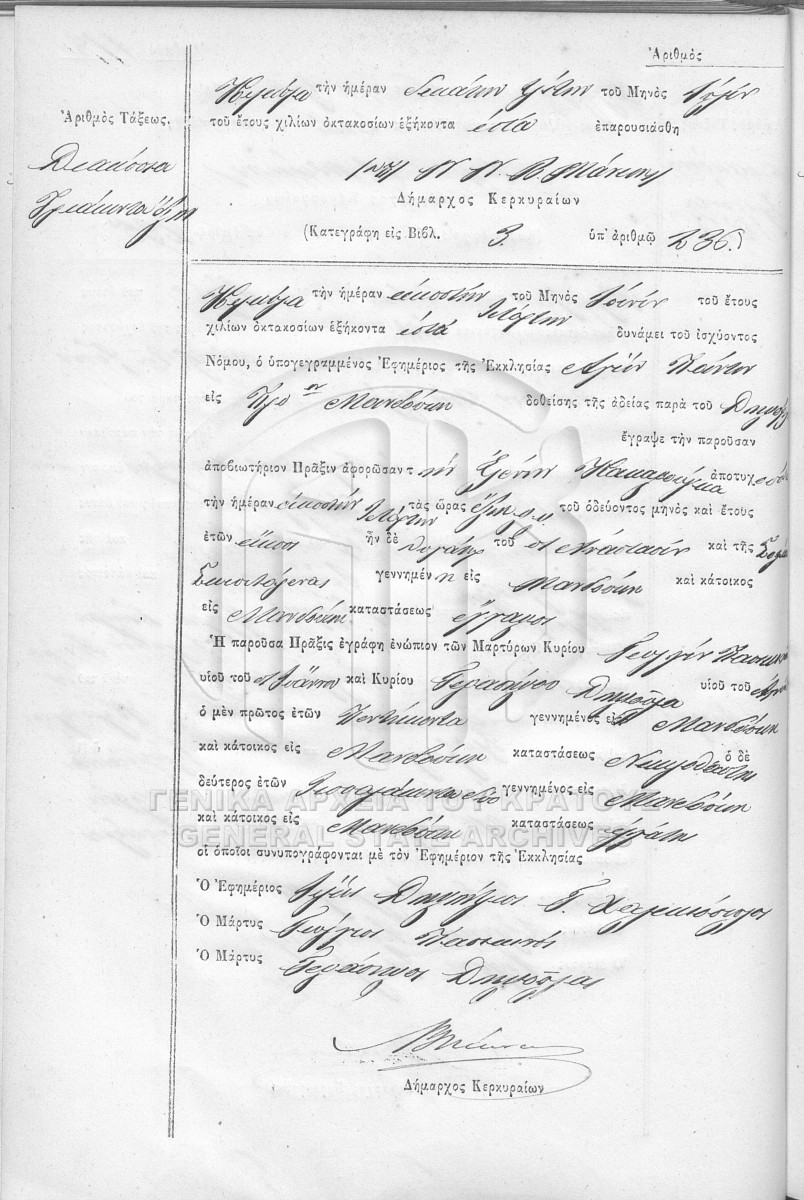 Ἀριθμὸς
Κέρκυρα τὴν ἡμέραν δεκάτην ἕκτην τοῦ Μηνὸς
τοῦ ἔτους χιλίων ὀκτακοσίων ἑξήκοντα ἑπτὰ ἐπαρουσιάσθη
Ἀριθμὸς Τάξεως.
Διακόσια
Τριάκοντα ἕξη
Δήμαρχος Κερκυραίων
(Κατεγράφη εἰς Βιβλ. 3. ὑπ' ἀριθμῷ 236.)
Κέρκυρα τὴν ἡμέραν εἰκοστὴν τετάρτην τοῦ Μηνὸς Ἰουνίου τοῦ ἔτους
χιλίων ὀκτακοσίων ἑξήκοντα ἑπτὰ δυνάμει τοῦ ἰσχύοντος
Νόμου, ὁ ὑπογεγραμμένος Ἐφημέριος τῆς Ἐκκλησίας Ἁγίων Πάντων
εἰς Μανδούκι δοθείσης τῆς ἀδείας παρὰ τοῦ
ἔγραψε τὴν παροῦσαν
ἀποβιωτήριον Πρᾶξιν ἀφορῶσαν τὴν Ἑλένην ἀποτυχ
τὴν ἡμέραν εἰκοστὴν τετάρτην τὰς ὥρας τοῦ ὁδεύοντος μηνὸς καὶ ἔτους
ἐτῶν εἴκοσι ἦν δὲ θυγάτηρ τοῦ Ἀναστασίου καὶ τῆς
γεννημένη εἰς Μανδούκι καὶ κάτοικος
εἰς Μανδούκι καταστάσεως ἔγγαμος
Ἡ παροῦσα Πρᾶξις ἐγράφη ἐνώπιον τῶν Μαρτύρων Κυρίου Γεωργίου
υἱοῦ τοῦ Ἰωάννου καὶ Κυρίου Γερασίμου υἱοῦ τοῦ
ὁ μὲν πρῶτος ἐτῶν Πεντήκοντα γεννημένος εἰς Μανδούκι
καὶ κάτοικος εἰς Μανδούκι καταστάσεως ὁ δὲ
δεύτερος ἐτῶν Τεσσαράκοντα δύο γεννημένος εἰς Μανδούκι
ΓΕΝΙΚΑ ΑΡΧΕΙΑ ΤΟΥ ΚΡΑΤΟΥΣ
καὶ κάτοικος εἰς Μανδούκι καταστάσεως ἐργάτης
GENERAL STATE ARCHIVES
οἱ ὁποῖοι συνυπογράφονται μὲ τὸν Ἐφημέριον τῆς Ἐκκλησίας
Ὁ Ἐφημέριος Ἱερεὺς Δημήτριος Γ.
Ὁ Μάρτυς Γεώργιος
Ὁ Μάρτυς Γεράσιμος
Δήμαρχος Κερκυραίων